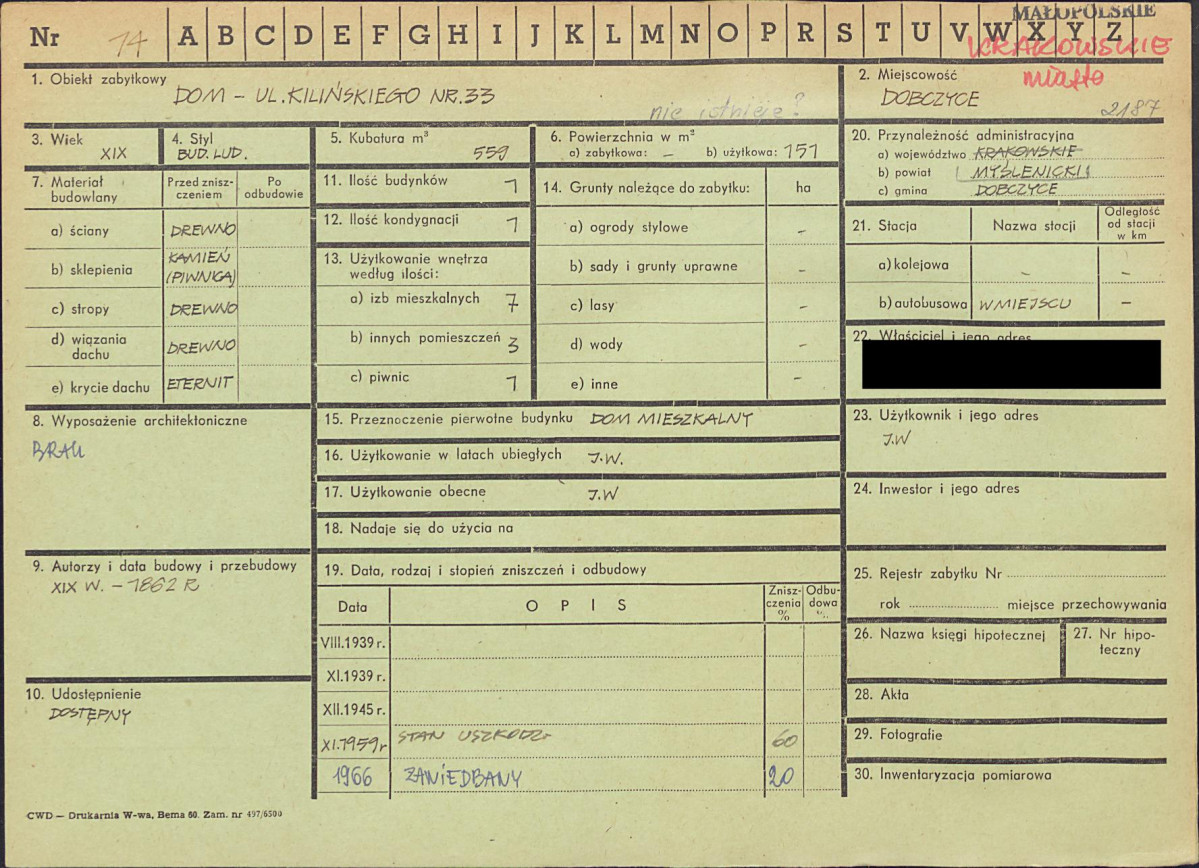 MAŁOPOLSKIE
Nr 14 A B C D E F G H I J K L M N O P R S T U V W X Y Z
KRAKOWSKIE
miasto
1. Obiekt zabytkowy
DOM – UL. KILIŃSKIEGO NR. 33
nie istnieje?
2. Miejscowość
DOBCZYCE
2187
3. Wiek
XIX
4. Styl
BUD. LUD.
5. Kubatura m³
559
6. Powierzchnia w m²
a) zabytkowa: – b) użytkowa: 151
20. Przynależność administracyjna
a) województwo KRAKOWSKIE
b) powiat MYŚLENICKI
c) gmina DOBCZYCE
7. Materiał budowlany
Przed zniszczeniem
Po odbudowie
a) ściany DREWNO
b) sklepienia KAMIEŃ (PIWNICA)
c) stropy DREWNO
d) wiązania dachu DREWNO
e) krycie dachu ETERNIT
11. Ilość budynków 1
12. Ilość kondygnacji 1
13. Użytkowanie wnętrza według ilości:
a) izb mieszkalnych 7
b) innych pomieszczeń 3
c) piwnic 1
14. Grunty należące do zabytku: ha
a) ogrody stylowe –
b) sady i grunty uprawne –
c) lasy –
d) wody –
e) inne –
21. Stacja Nazwa stacji Odległość od stacji w km
a) kolejowa – –
b) autobusowa W MIEJSCU –
22. Właściciel i jego adres
8. Wyposażenie architektoniczne
BRAK
15. Przeznoczenie pierwotne budynku DOM MIESZKALNY
16. Użytkowanie w latach ubiegłych J.W.
17. Użytkowanie obecne J.W
18. Nadaje się do użycia na
23. Użytkownik i jego adres
J.W
24. Inwestor i jego adres
9. Autorzy i data budowy i przebudowy
XIX W. – 1862 R
19. Data, rodzaj i stopień zniszczeń i odbudowy
Data OPIS Zniszczenia % Odbudowa %
VIII.1939 r.
XI.1939 r.
XII.1945 r.
XI.1959 r STAN USZKODZ. 60
1966 ZANIEDBANY 20
25. Rejestr zabytku Nr
rok miejsce przechowywania
26. Nazwa księgi hipotecznej
27. Nr hipoteczny
28. Akta
29. Fotografie
30. Inwentaryzacja pomiarowa
10. Udostępnienie
DOSTĘPNY
CWD — Drukarnia W-wa, Bema 60. Zam. nr 497/6500